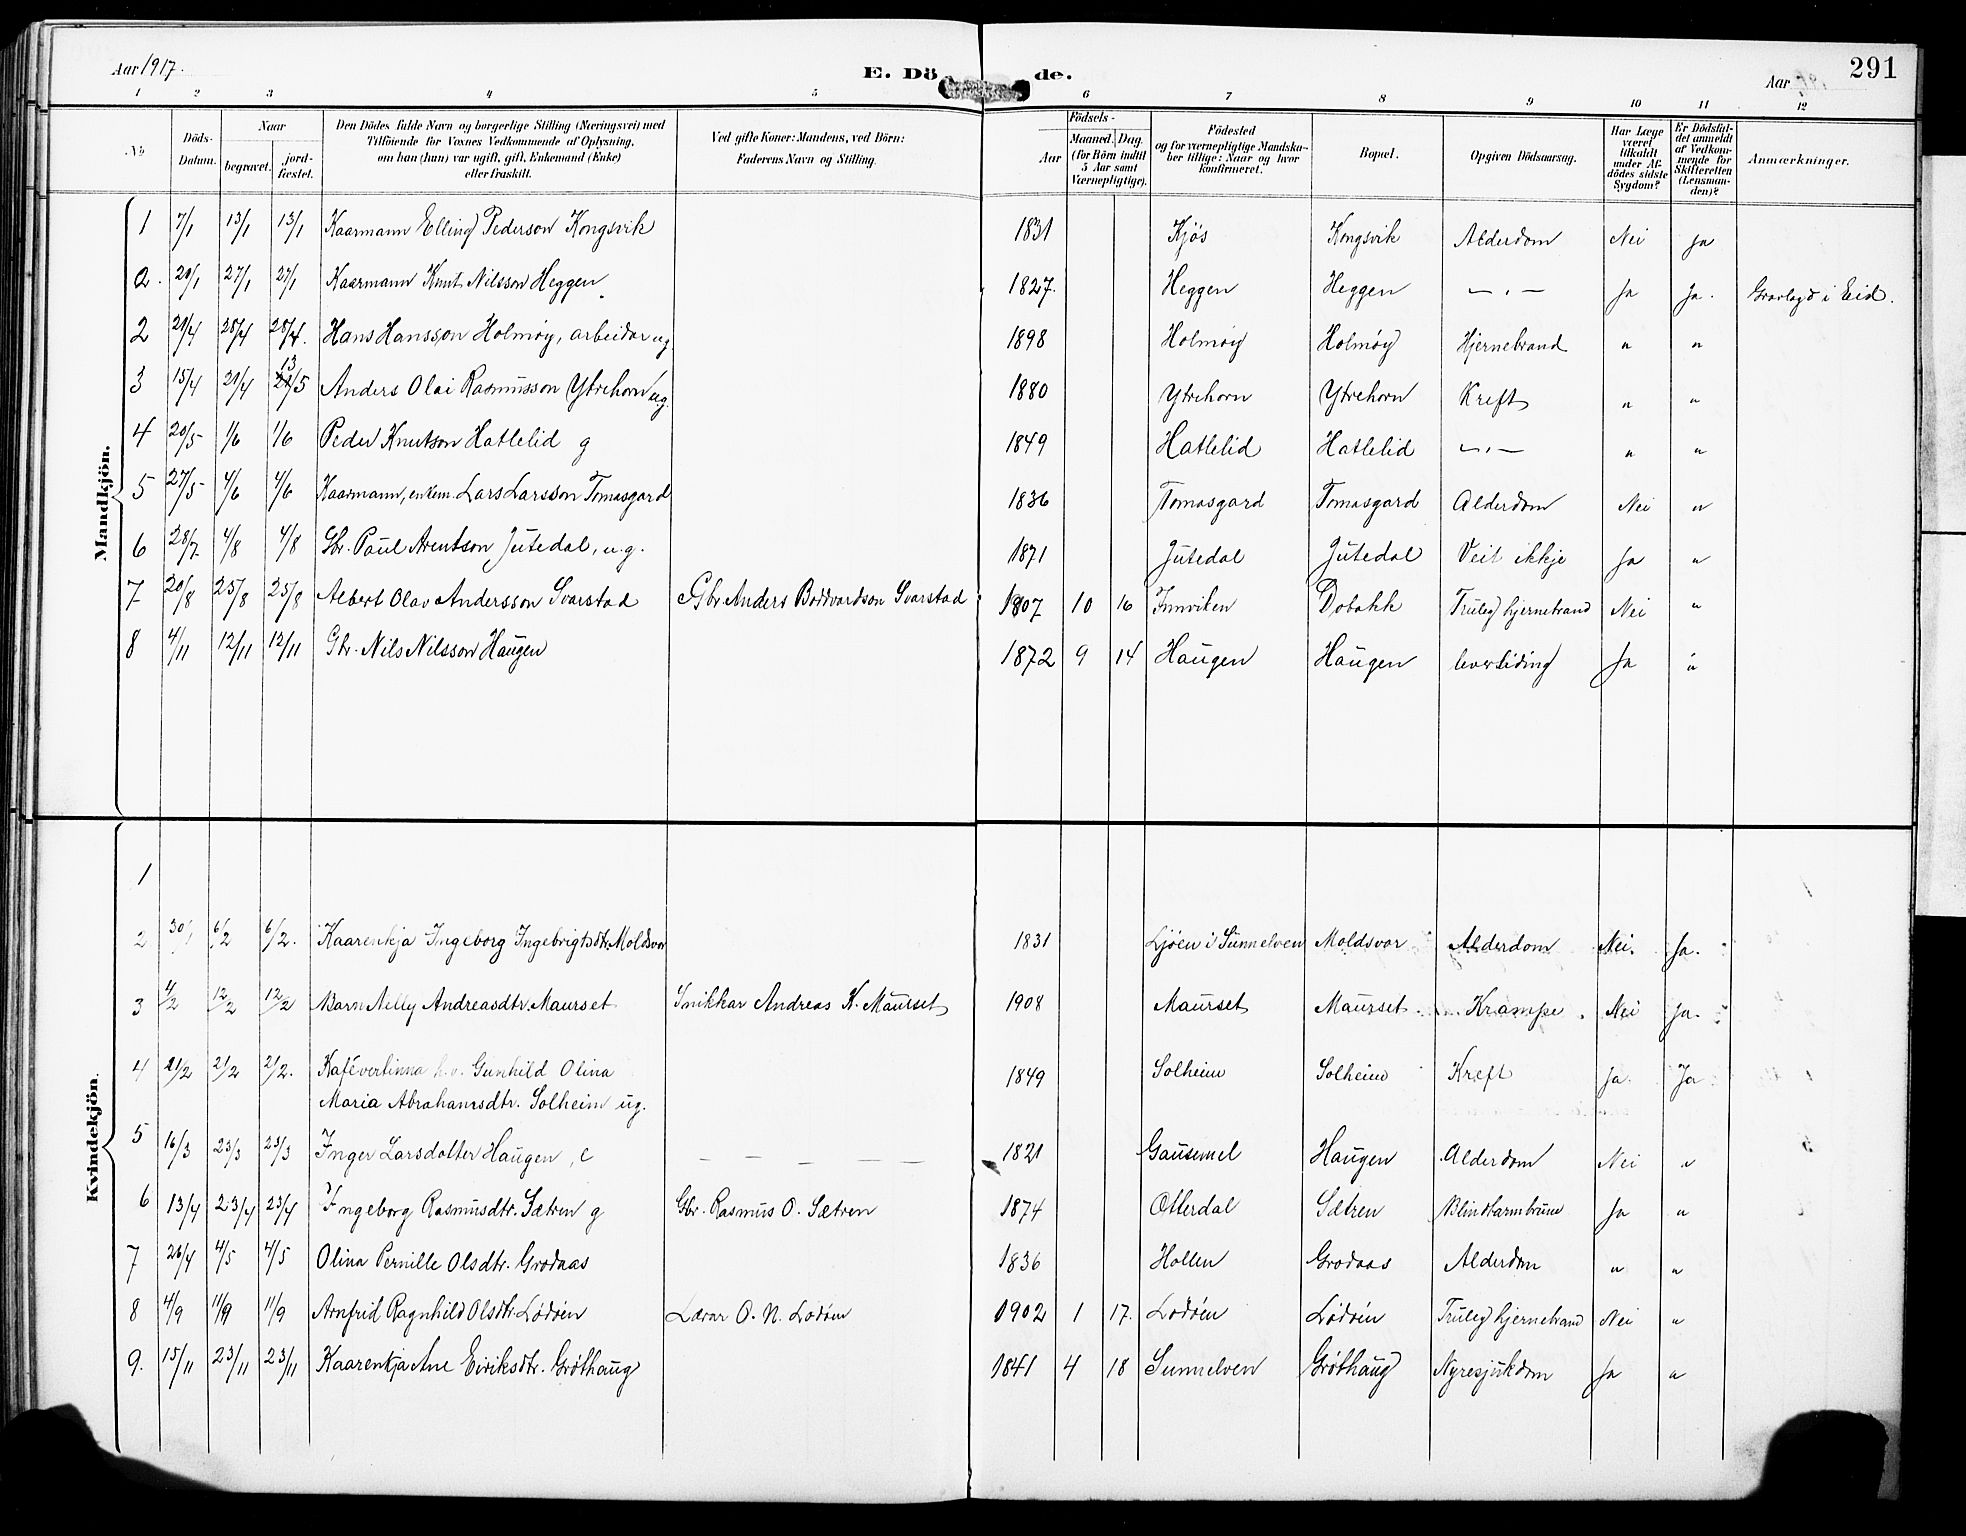 Aar 1917.
E. Dö de.
Aar
291
1 2 3 4 5 6 7 8 9 10 11 12
No
Döds-Datum.
Naar
begravet.
jord-fæstet.
Den Dödes fulde Navn og borgerlige Stilling (Næringsvei) med
Tilföiende for Voxnes Vedkommende af Oplysning,
om han (hun) var ugift, gift, Enkemand (Enke)
eller fraskilt.
Ved gifte Koner: Mandens, ved Börn:
Faderens Navn og Stilling.
Födsels-
Aar
Maaned. Dag.
(for Börn indtil
5 Aar samt
Værnepligtige).
Födested
og for værnepligtige Mandska-
ber tillige: Naar og hvor
konfirmeret.
Bopæl.
Opgiven Dödsaarsag.
Har Læge
været
tilkaldt
under Af-
dödes sidste
Sygdom?
Er Dödsfal-
det anmeldt
af Vedkom-
mende for
Skifteretten
(Lensman-
den)?
Anmærkninger.
Mandkjön.
1 7/1 13/1 13/1 Kaarmann Elling Pederson Kongsvik 1831 Kjøs Kongsvik Alderdom Nei Ja
2. 20/1 27/1 27/1 Kaarmann Knut Nilsson Heggen 1827. Heggen Heggen — " — Ja Ja. Gravlagd i Eid.
2 21/4 28/4 28/4. Hans Hansson Holmøy, arbeidar ug. 1898 Holmøy Holmøy Hjernebrand " "
3 15/4 21/4 13/5 Anders Olai Rasmusson Ytrehorn ug. 1880 Ytrehorn Ytrehorn Kreft " "
4 20/5 1/6 1/6 Peder Knutson Hatlelid g 1849 Hatlelid Hatlelid — " — " "
5 27/5 4/6 4/6 Kaarmann, enkem. Lars Larsson Tomasgard 1836 Tomasgard Tomasgard Alderdom Nei "
6 28/7 4/8 4/8 Gbr. Paul Arentson Jutedal, ug. 1871 Jutedal Jutedal Veit ikkje Ja "
7 20/8 25/8 25/8 Albert Olav Andersson Svarstad Gbr Anders Boddvardson Svarstad 1907 10 16 Innviken Dobakk Truleg hjernebrand Nei "
8 4/11 12/11 12/11 Gbr. Nils Nilsson Haugen 1872 9 14 Haugen Haugen Ja "
Kvindekjön.
1
2 30/1 6/2 6/2. Kaarenkja Ingeborg Ingebrigtsdtr. Moldsvor 1831 Ljøen i Sunnelven Moldsvor Alderdom Nei. Ja.
3 4/2 12/2 12/2 Barn Nelly Andreasdtr. Maurset Snikkar Andreas K. Maurset 1908 Maurset Maurset Krampe Nei Ja.
4 21/2 2/2 2/2. Kafévertinna h.v. Gunhild Olina 1849 Solheim Solheim Kreft Ja. Ja
Maria Abrahamsdtr. Solheim ug.
5 16/3 23/3 23/3 Inger Larsdotter Haugen, e — — — — — 1821 Gausemel Haugen Alderdom Nei "
6 13/4 23/4 23/4 Ingeborg Rasmusdtr. Sætren g Gbr. Rasmus O. Sætren 1874 Otterdal Sætren Blindtarmbrune Ja "
7 26/4 4/5 4/5 Olina Pernille Olsdtr. Grodaas 1836 Hollen Grodaas Alderdom " "
8 4/9 11/9 11/9 Arnfrid Ragnhild Olsdtr. Lødøen Lærar O. N. Lødøen 1902 1 17. Lødøen Lødøen Truleg hjernebrand Nei "
9. 15/11 23/11 23/11 Kaarenkja Ane Eiriksdtr. Grøthaug 1841 4 18 Sunnelven Grøthaug Nyresjukdom Ja "